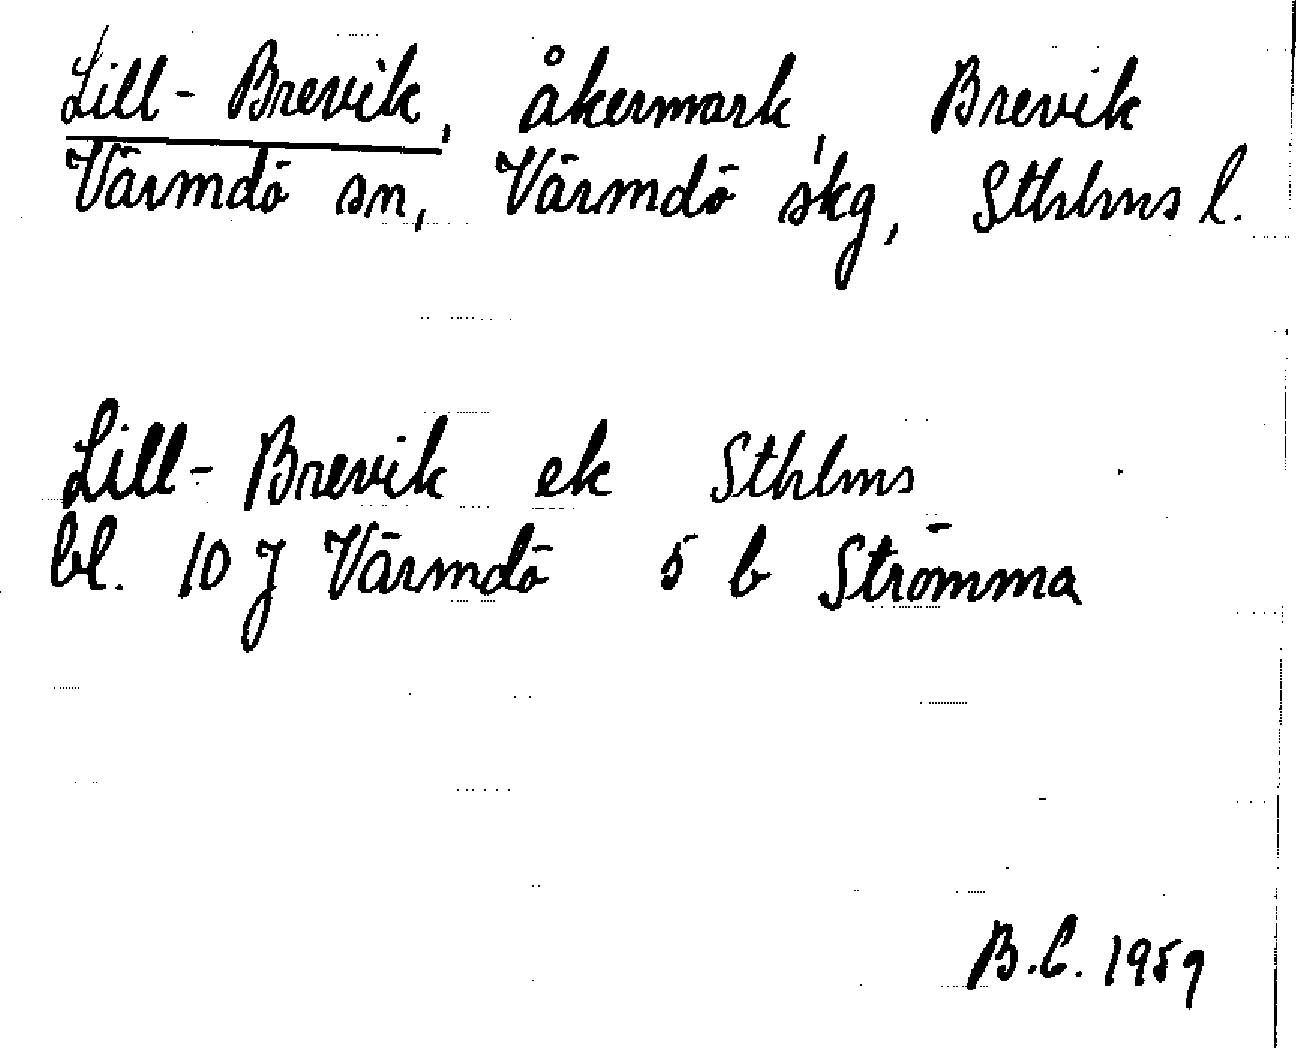 Lill-Brevik, åkermark, Brevik
Värmdö sn, Värmdö skg, Sthlms l.
Lill-Brevik ek Sthlms
bl. 10 J Värmdö 5 b Strömma
B.C. 1959